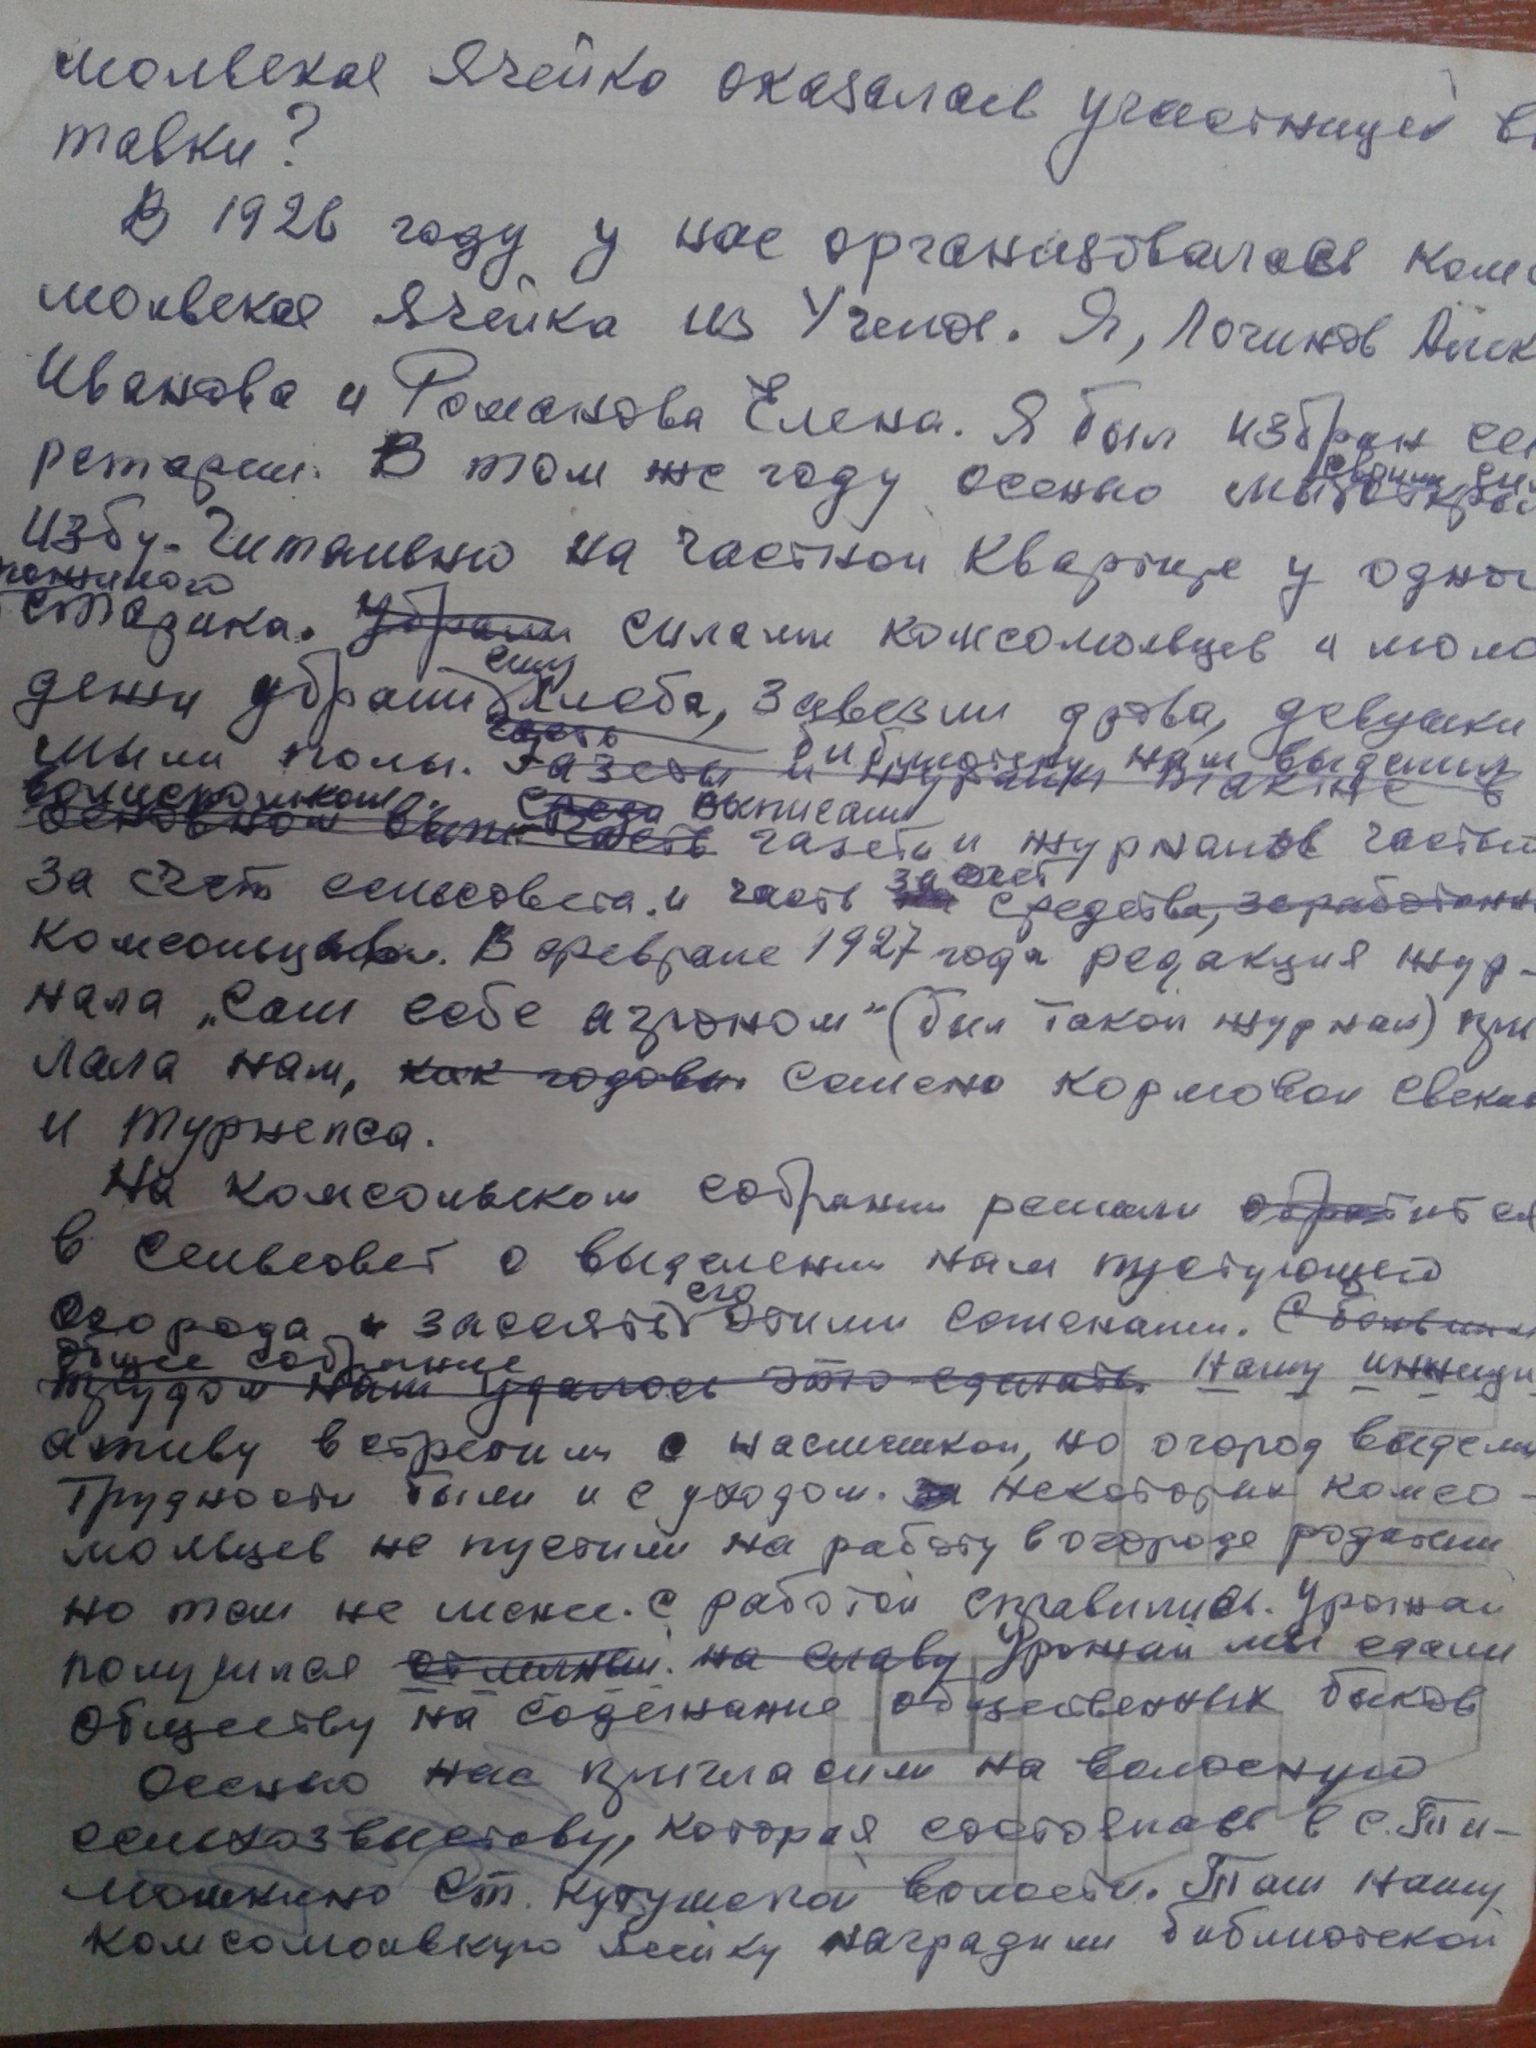 мольская ячейка оказалась участницей вы
тавки?
В 1926 году у нас организовалась комс
мольская ячейка из 4 член. Я, Логинов
Иванова и Романова Елена. Я был избран сек
ретарем. В том же году осенью мы своими
избу-читальню на частной квартире у одног
старика. Убрали силами комсомольцев и моло
дежи убрали ему хлеба, завезли дрова, девушки
мыли полы. Газеты и журналы также в
библиотеку нам выделил
волисполком.
основном часть выписали газеты и журналов частью
за счет сельсовета и часть за счет средства, заработанн
комсомольцами. В феврале 1927 года редакция жур-
нала „Сам себе агроном" (был такой журнал) при
лала нам, как годовы. семена кормовой свеклы
и турнепса.
На комсольском собрании решили обратится
в сельсовет о выделении нам пустующего
огорода и засеять его этими семенами. С большим
общее собрание
трудом нам удалось это сделать. Нашу инници
ативу встретили с насмешкой, но огород выдели
Трудности были и с уходом. За некоторых комсо-
мольцев не пустили на работу в огороде родители
но тем не менее с работой справились. Урожай
получился отличный. на славу Урожай мы сдали
обществу на содежание общественных быков
Осенью нас пригласили на волосную
сельхозвыстову, которая состоялась в с. Ти-
мошкино Ст. Кутушской волости. Там нашу
комсомольскую ячейку наградили библиотекой